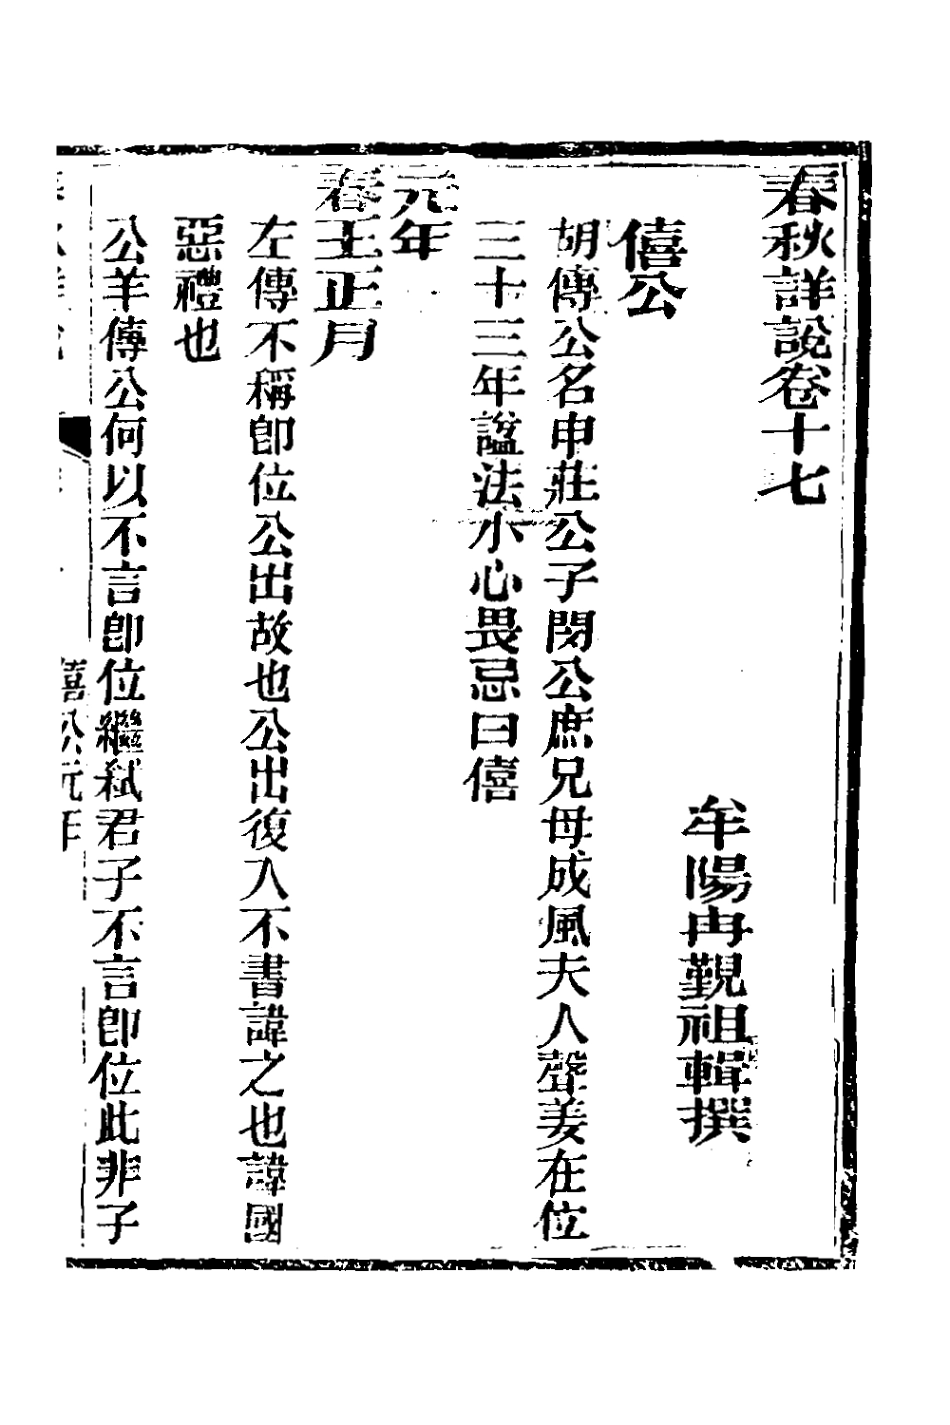 春秋詳說卷十七
牟陽冉覲祖輯撰
僖公
胡傳公名申莊公子閔公庶兄母成風夫人聲姜在位
三十三年諡法小心畏忌曰僖
元年
春王正月
左傳不稱卽位公出故也公出復入不書諱之也諱國
惡禮也
公羊傳公何以不言卽位繼弒君子不言卽位此非子
僖公元年